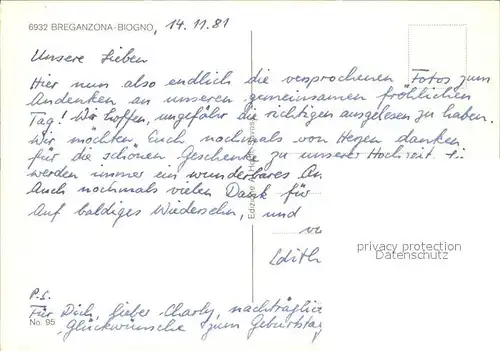 6932 BREGANZONA-BIOGNO, 14.11.81
Unsere Lieben
Hier nun also endlich die versprochenen Fotos zum
Andenken an unseren gemeinsamen fröhlichen
Tag! Wir hoffen, ungefähr die richtigen ausgelesen zu haben.
Wir möchten Euch nochmals von Herzen danken
für die schönen Geschenke zu unserer Hochzeit. Sie
werden immer ein wunderbares An
Auch nochmals vielen Dank für
Auf baldiges Wiedersehn, und
Edith
privacy protection
Datenschutz
P.S.
Für Dich, lieber Charly, nachträglic
Glückwünsche zum Geburtstag
No. 95